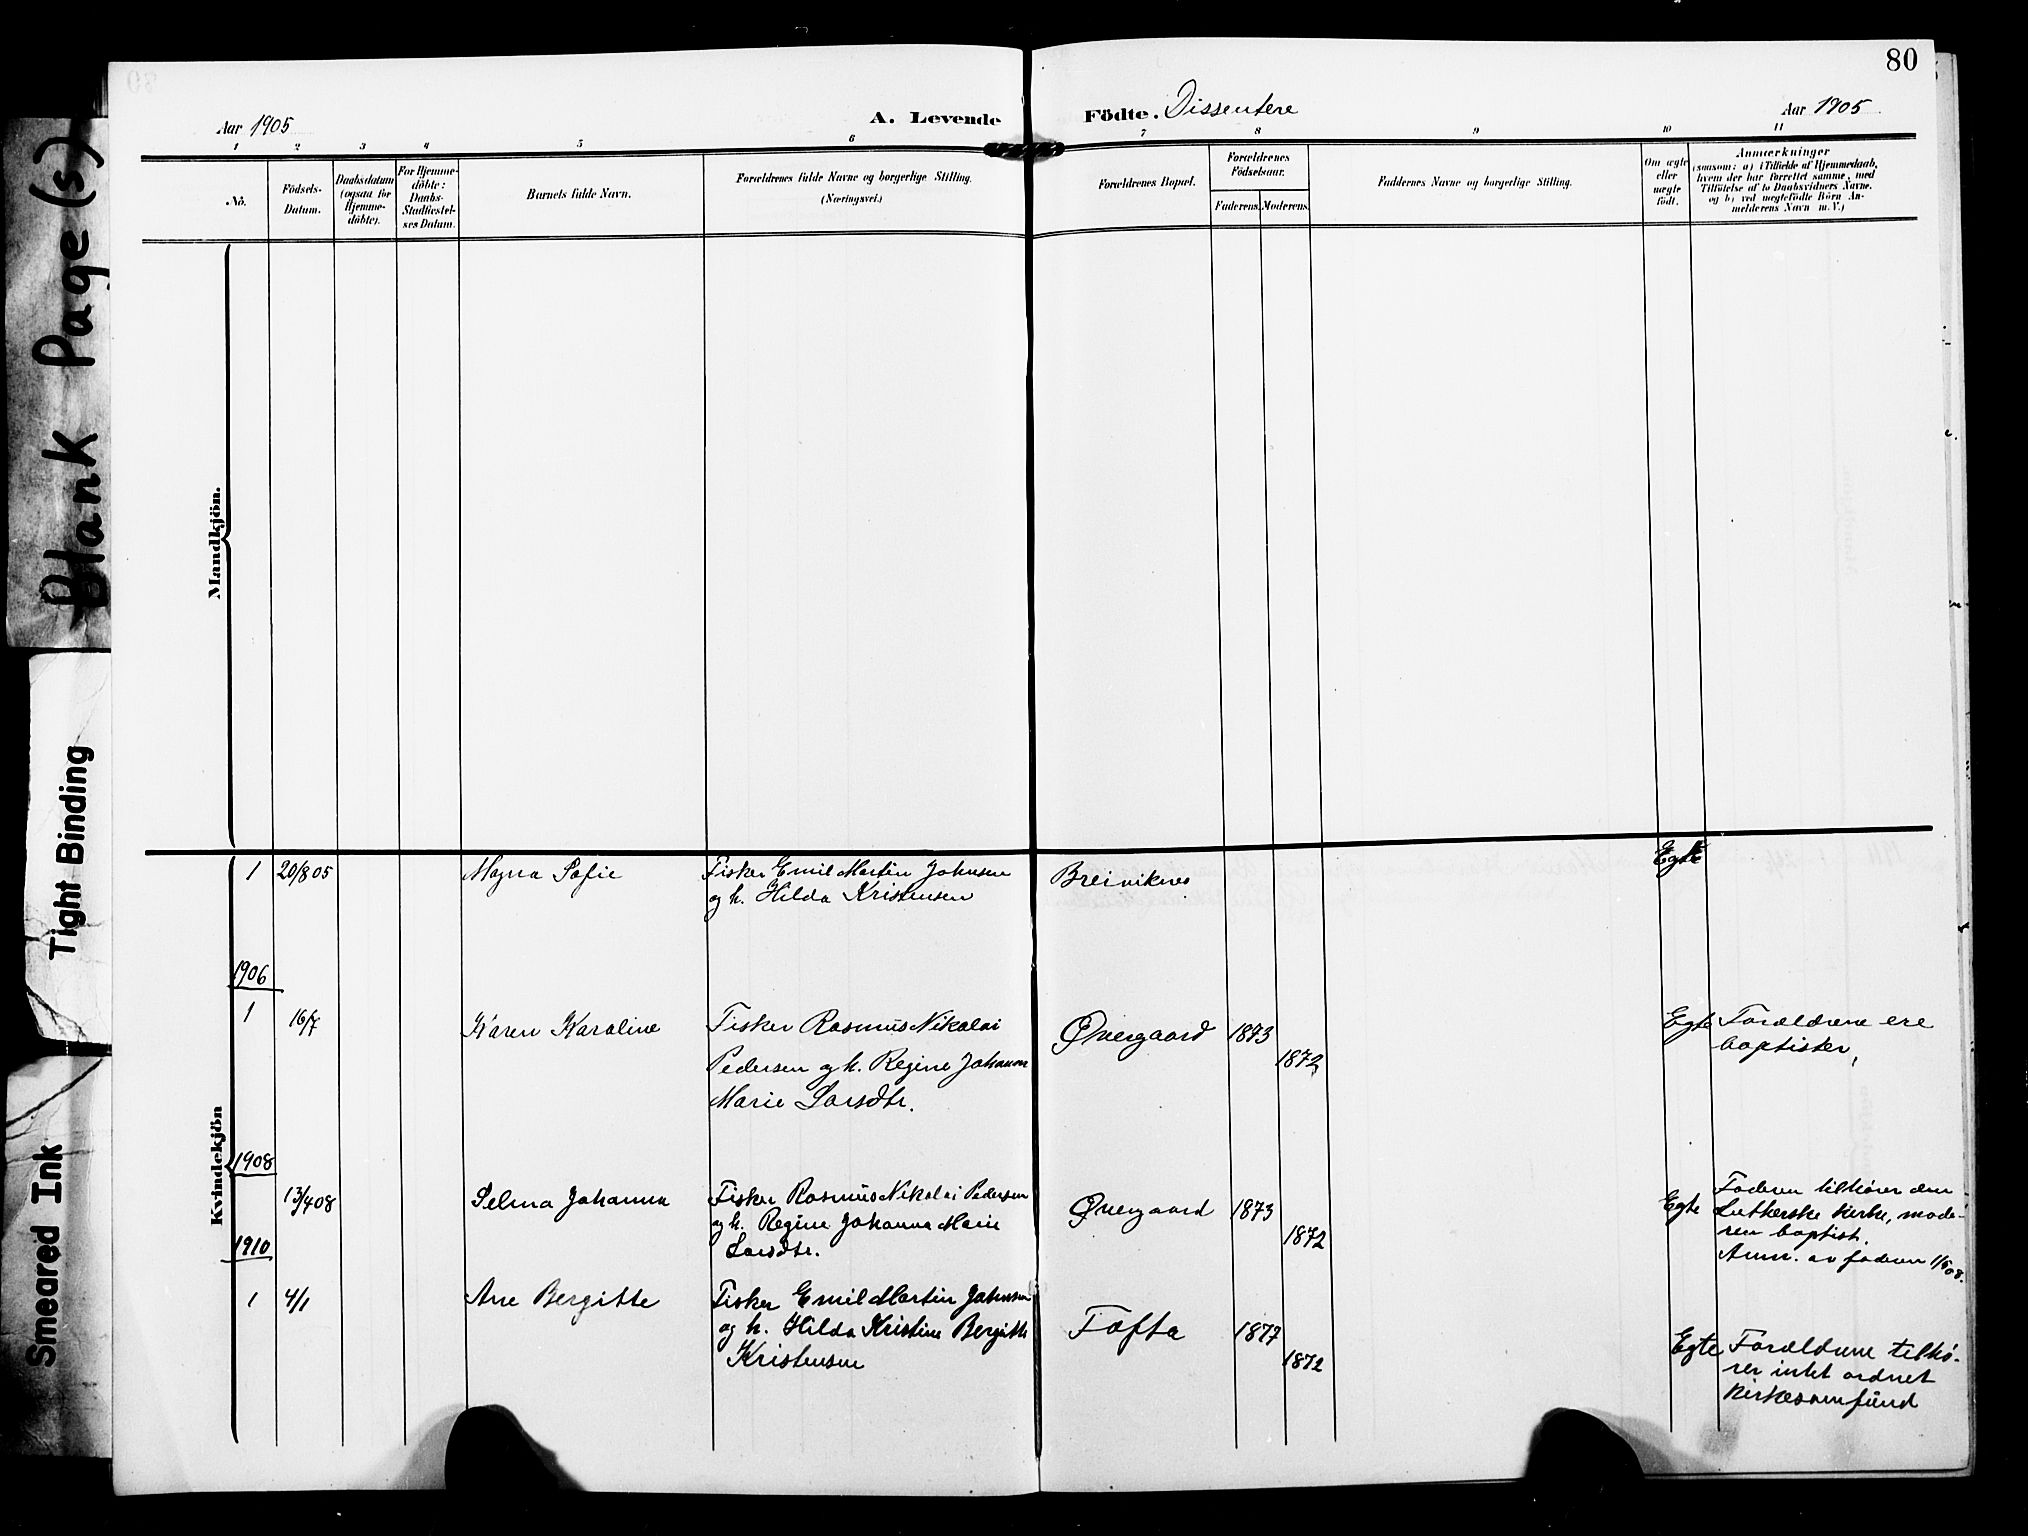 Blank Page (s)
Tight Binding
Smeared Ink
80
Aar 1905
A. Levende Födte. Dissentere
Aar 1905
1 2 3 4 5 6 7 8 9 10 11
No.
Födsels-
Datum.
Daabsdatum
(ogsaa for
Hjemme-
döbte).
For Hjemme-
döbte:
Daabs-
Stadfæstel-
ses Datum.
Barnets fulde Navn.
Forældrenes fulde Navne og borgerlige Stilling.
(Næringsvei.)
Forældrenes Bopæl.
Forældrenes
Födselsaar.
Faderens. Moderens.
Faddernes Navne og borgerlige Stilling.
Om ægte
eller
uægte
födt.
Anmærkninger
(saasom: a) i Tilfælde af Hjemmedaab,
hvem der har forrettet samme, med
Tilföielse af to Daabsvidners Navne.
og b) ved uegtefödte Börn An-
melderens Navn m. V.)
Mandkjön.
Kvindekjön
1 20/8 05 Magna Sofie Fisker Emil Martin Johnsen Breiviknes Egte
og h. Hilda Kristensen
1906
1 16/7 Karen Karoline Fisker Rasmus Nikolai Øvergaard 1873 Egte Forældrene ere
Pedersen og h. Regine Johanna 1872 baptister,
Marie Larsdtr.
1908
13/4 08 Selma Johanna Fisker Rasmus Nikolai Pedersen Øvergaard 1873 Egte Faderen tilhører den
og h. Regine Johanna Marie 1872 Lutherske kirke, mode-
Larsdtr. ren baptist.
Anm. av faderen 1/5 08.
1910
1 4/1 Ane Bergitte Fisker Emil Martin Johnsen Tofta 1877 Egte Forældrene tilhø-
og h. Hilda Kristine Bergitte 1872 rer intet ordnet
Kristensen kirkesamfund